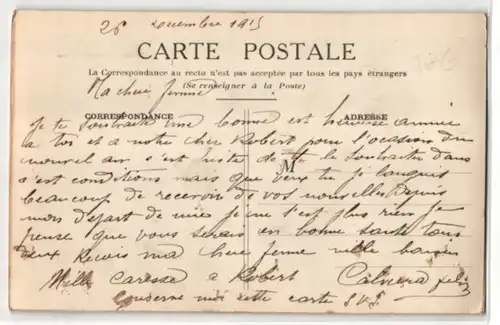 26 Decembre 1915
CARTE POSTALE
La Correspondance au recto n'est pas acceptée par tous les pays étrangers
(Se renseigner à la Poste)
Ma cher femme
CORRESPONDANCE
ADRESSE
Je te souhaite une bonne est heureuse année
a toi et a notre cher Robert pour l'ocasion du
nouvel an s'est triste de te le souhaiter dans
s'est conditions mais que veux tu je languis
beaucoup de recevoir de vos nouvelles depuis
mon depart de je ne s'est plus rien je
pense que vous serais en bonne sante tous
deux Recois ma cher femme mille baisers
Mille caresse a Robert
conserve moi cette carte S.V.P.
M